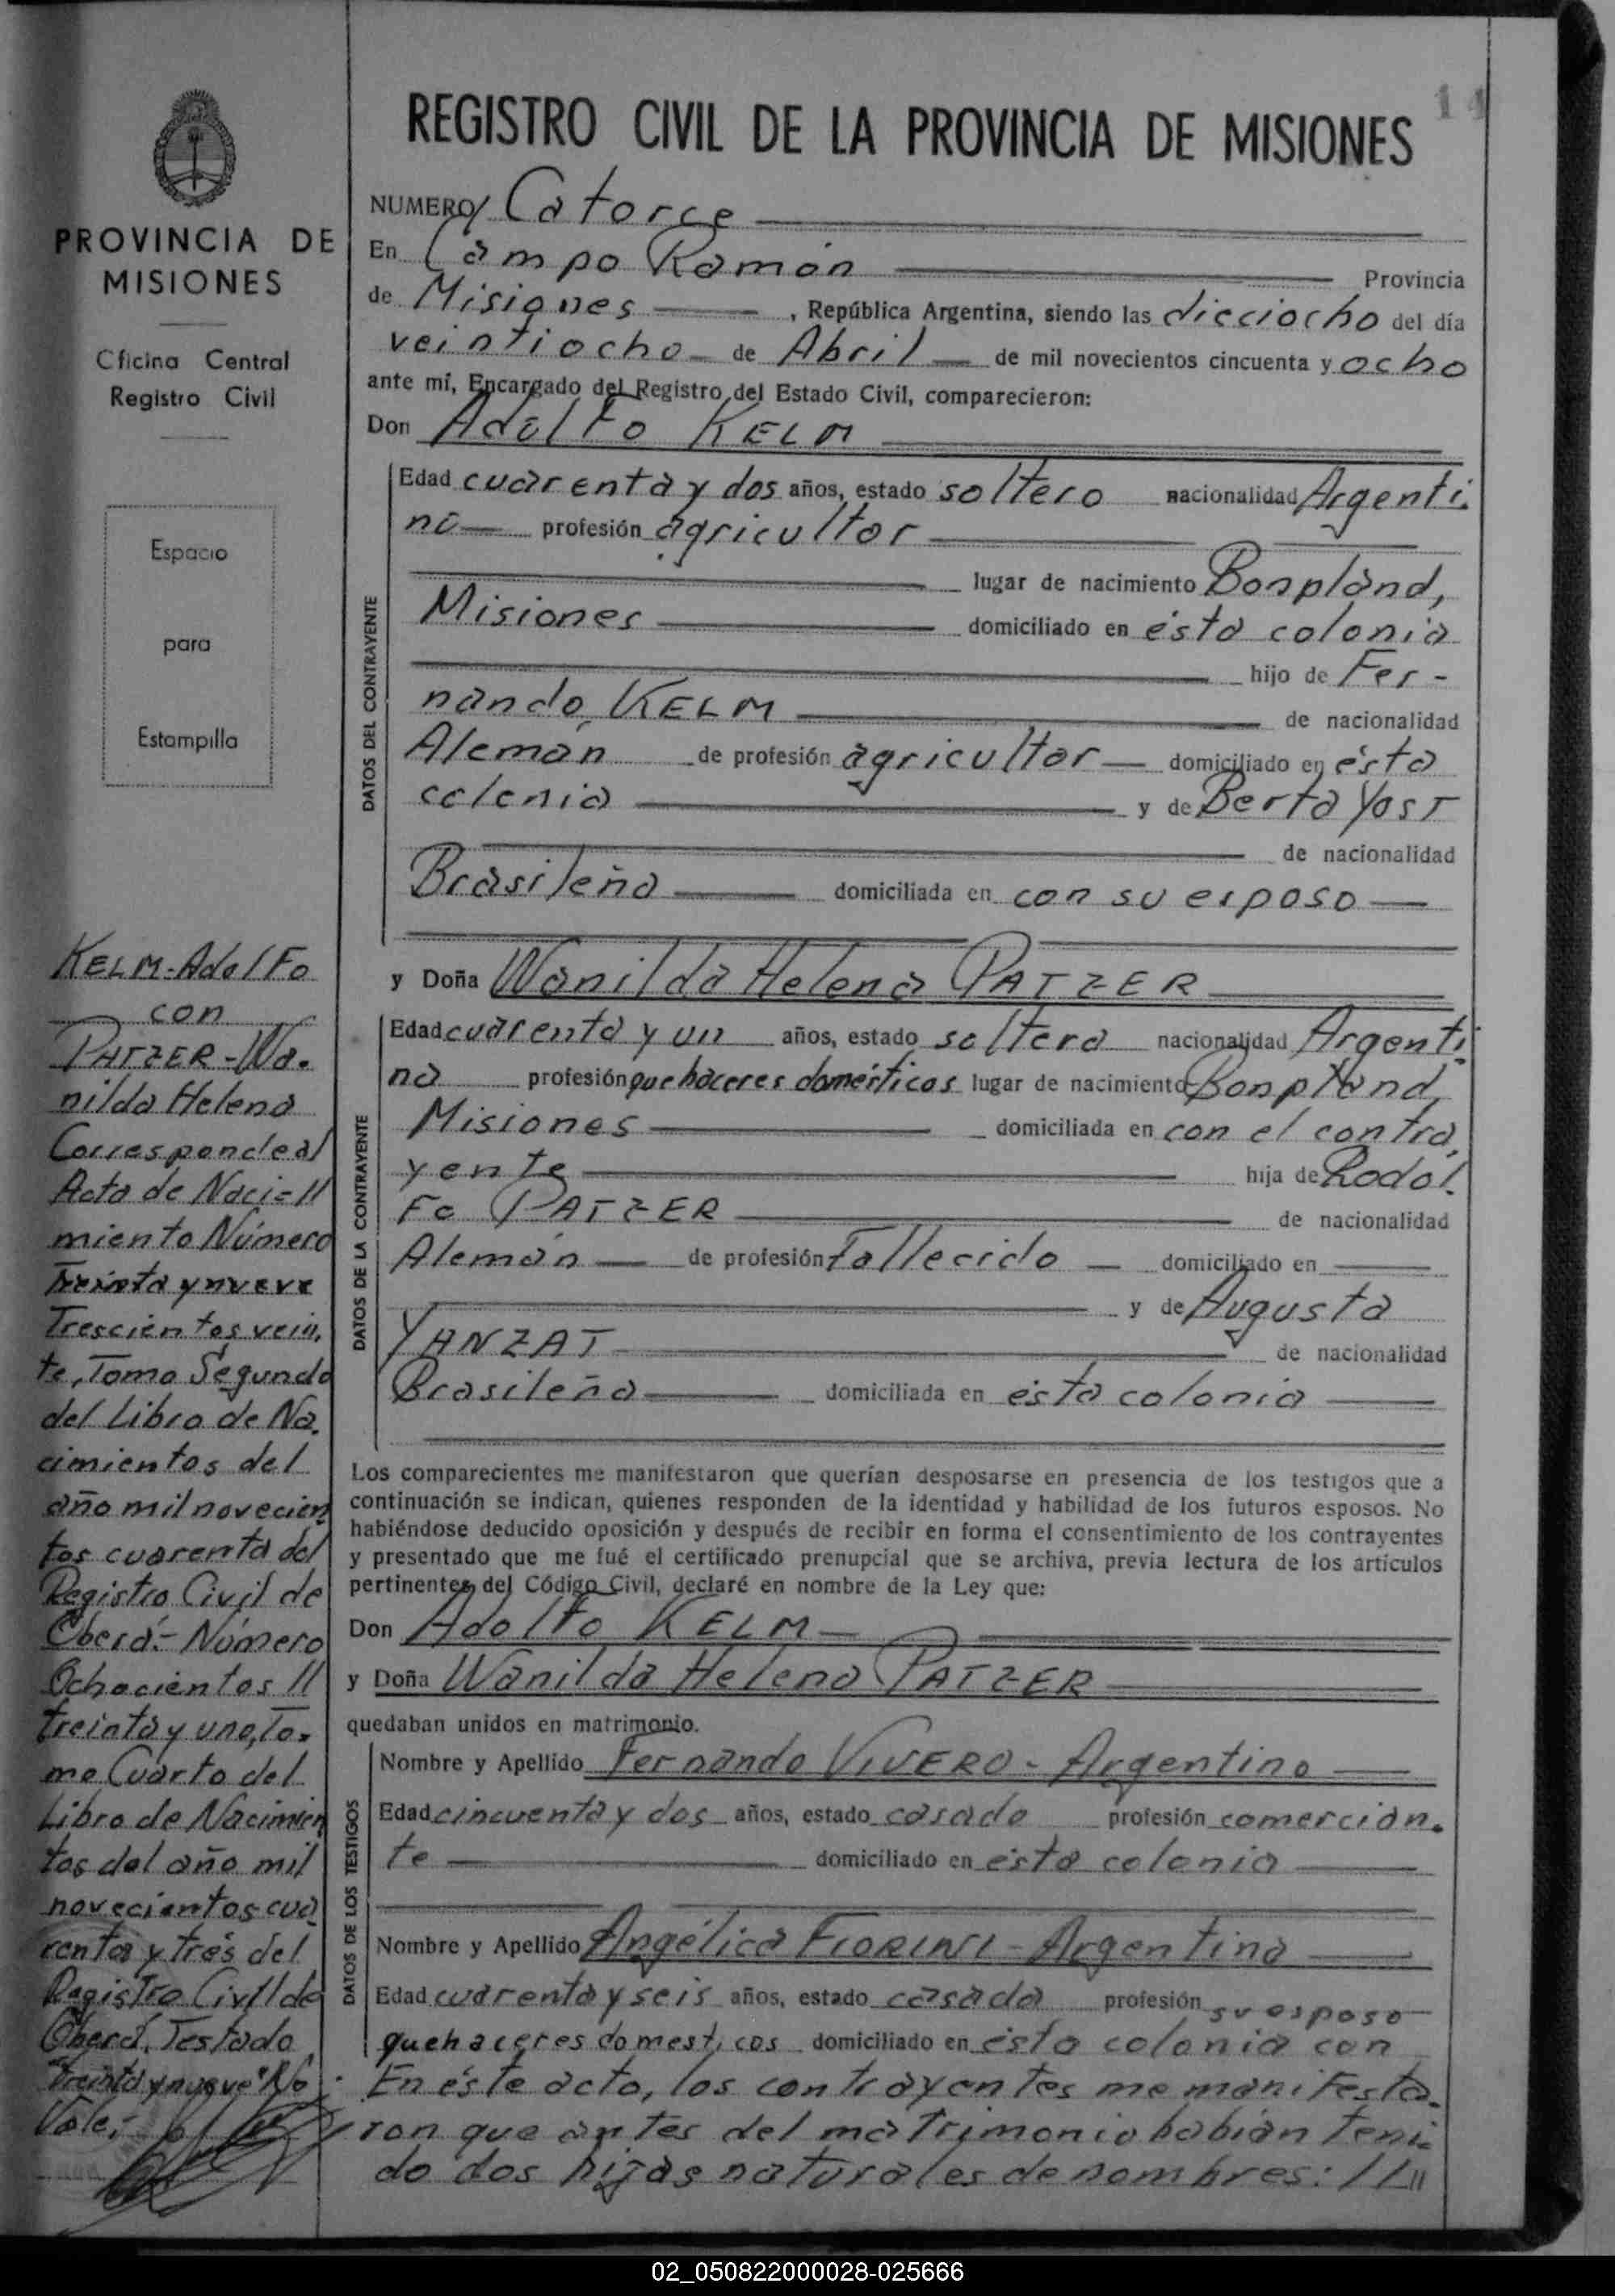 14
REGISTRO CIVIL DE LA PROVINCIA DE MISIONES
PROVINCIA DE
MISIONES
Oficina Central
Registro Civil
Espacio
para
Estampilla
KELM-Adolfo
con
PATZER-Wa-
nilda Helena
Corresponde al
Acta de Naci=//
miento Número
Treinta y nueve
Trescientos vein,
te, Tomo Segundo
del Libro de Na,
cimientos del
año mil novecien
tos cuarenta del
Registro Civil de
Oberá.- Número
Ochocientos //
treinta y uno, To-
mo Cuarto del
Libro de Nacimien
tos del año mil
novecientos cua
renta y tres del
Registro Civil de
Oberá. Testado
"Treinta y nueve" No
Vale.-
NUMERO/ Catorce
En Campo Ramón Provincia
de Misiones , República Argentina, siendo las dieciocho del día
veintiocho de Abril de mil novecientos cincuenta y ocho
ante mí, Encargado del Registro del Estado Civil, comparecieron:
Don Adolfo KELM
DATOS DEL CONTRAYENTE
Edad cuarenta y dos años, estado soltero nacionalidad Argenti.
no profesión agricultor
lugar de nacimiento Bonpland,
Misiones domiciliado en ésta colonia
hijo de Fer-
nando KELM de nacionalidad
Alemán de profesión agricultor domiciliado en ésta
colonia y de Berta YOST
de nacionalidad
Brasileña domiciliada en con su esposo
y Doña Wanilda Helena PATZER
DATOS DE LA CONTRAYENTE
Edad cuarenta y un años, estado soltera nacionalidad Argenti
na profesión quehaceres domésticos lugar de nacimiento Bonpland,
Misiones domiciliada en con el contra,
yente hija de Rodol.
fo PATZER de nacionalidad
Alemán de profesión Fallecido domiciliado en
y de Augusta
YANZAT de nacionalidad
Brasileña domiciliada en ésta colonia
Los comparecientes me manifestaron que querían desposarse en presencia de los testigos que a
continuación se indican, quienes responden de la identidad y habilidad de los futuros esposos. No
habiéndose deducido oposición y después de recibir en forma el consentimiento de los contrayentes
y presentado que me fué el certificado prenupcial que se archiva, previa lectura de los artículos
pertinentes del Código Civil, declaré en nombre de la Ley que:
Don Adolfo KELM
y Doña Wanilda Helena PATZER
quedaban unidos en matrimonio.
DATOS DE LOS TESTIGOS
Nombre y Apellido Fernando VIVERO - Argentino
Edad cincuenta y dos años, estado casado profesión comercian.
te domiciliado en ésta colonia
Nombre y Apellido Angélica FIORINI - Argentina
Edad cuarenta y seis años, estado casada profesión su esposo
quehaceres domesticos domiciliado en ésta colonia con
En éste acto, los contrayentes me manifesta.
ron que antes del matrimonio habían teni.
do dos hijas naturales de nombres: ///
02_050822000028-025666